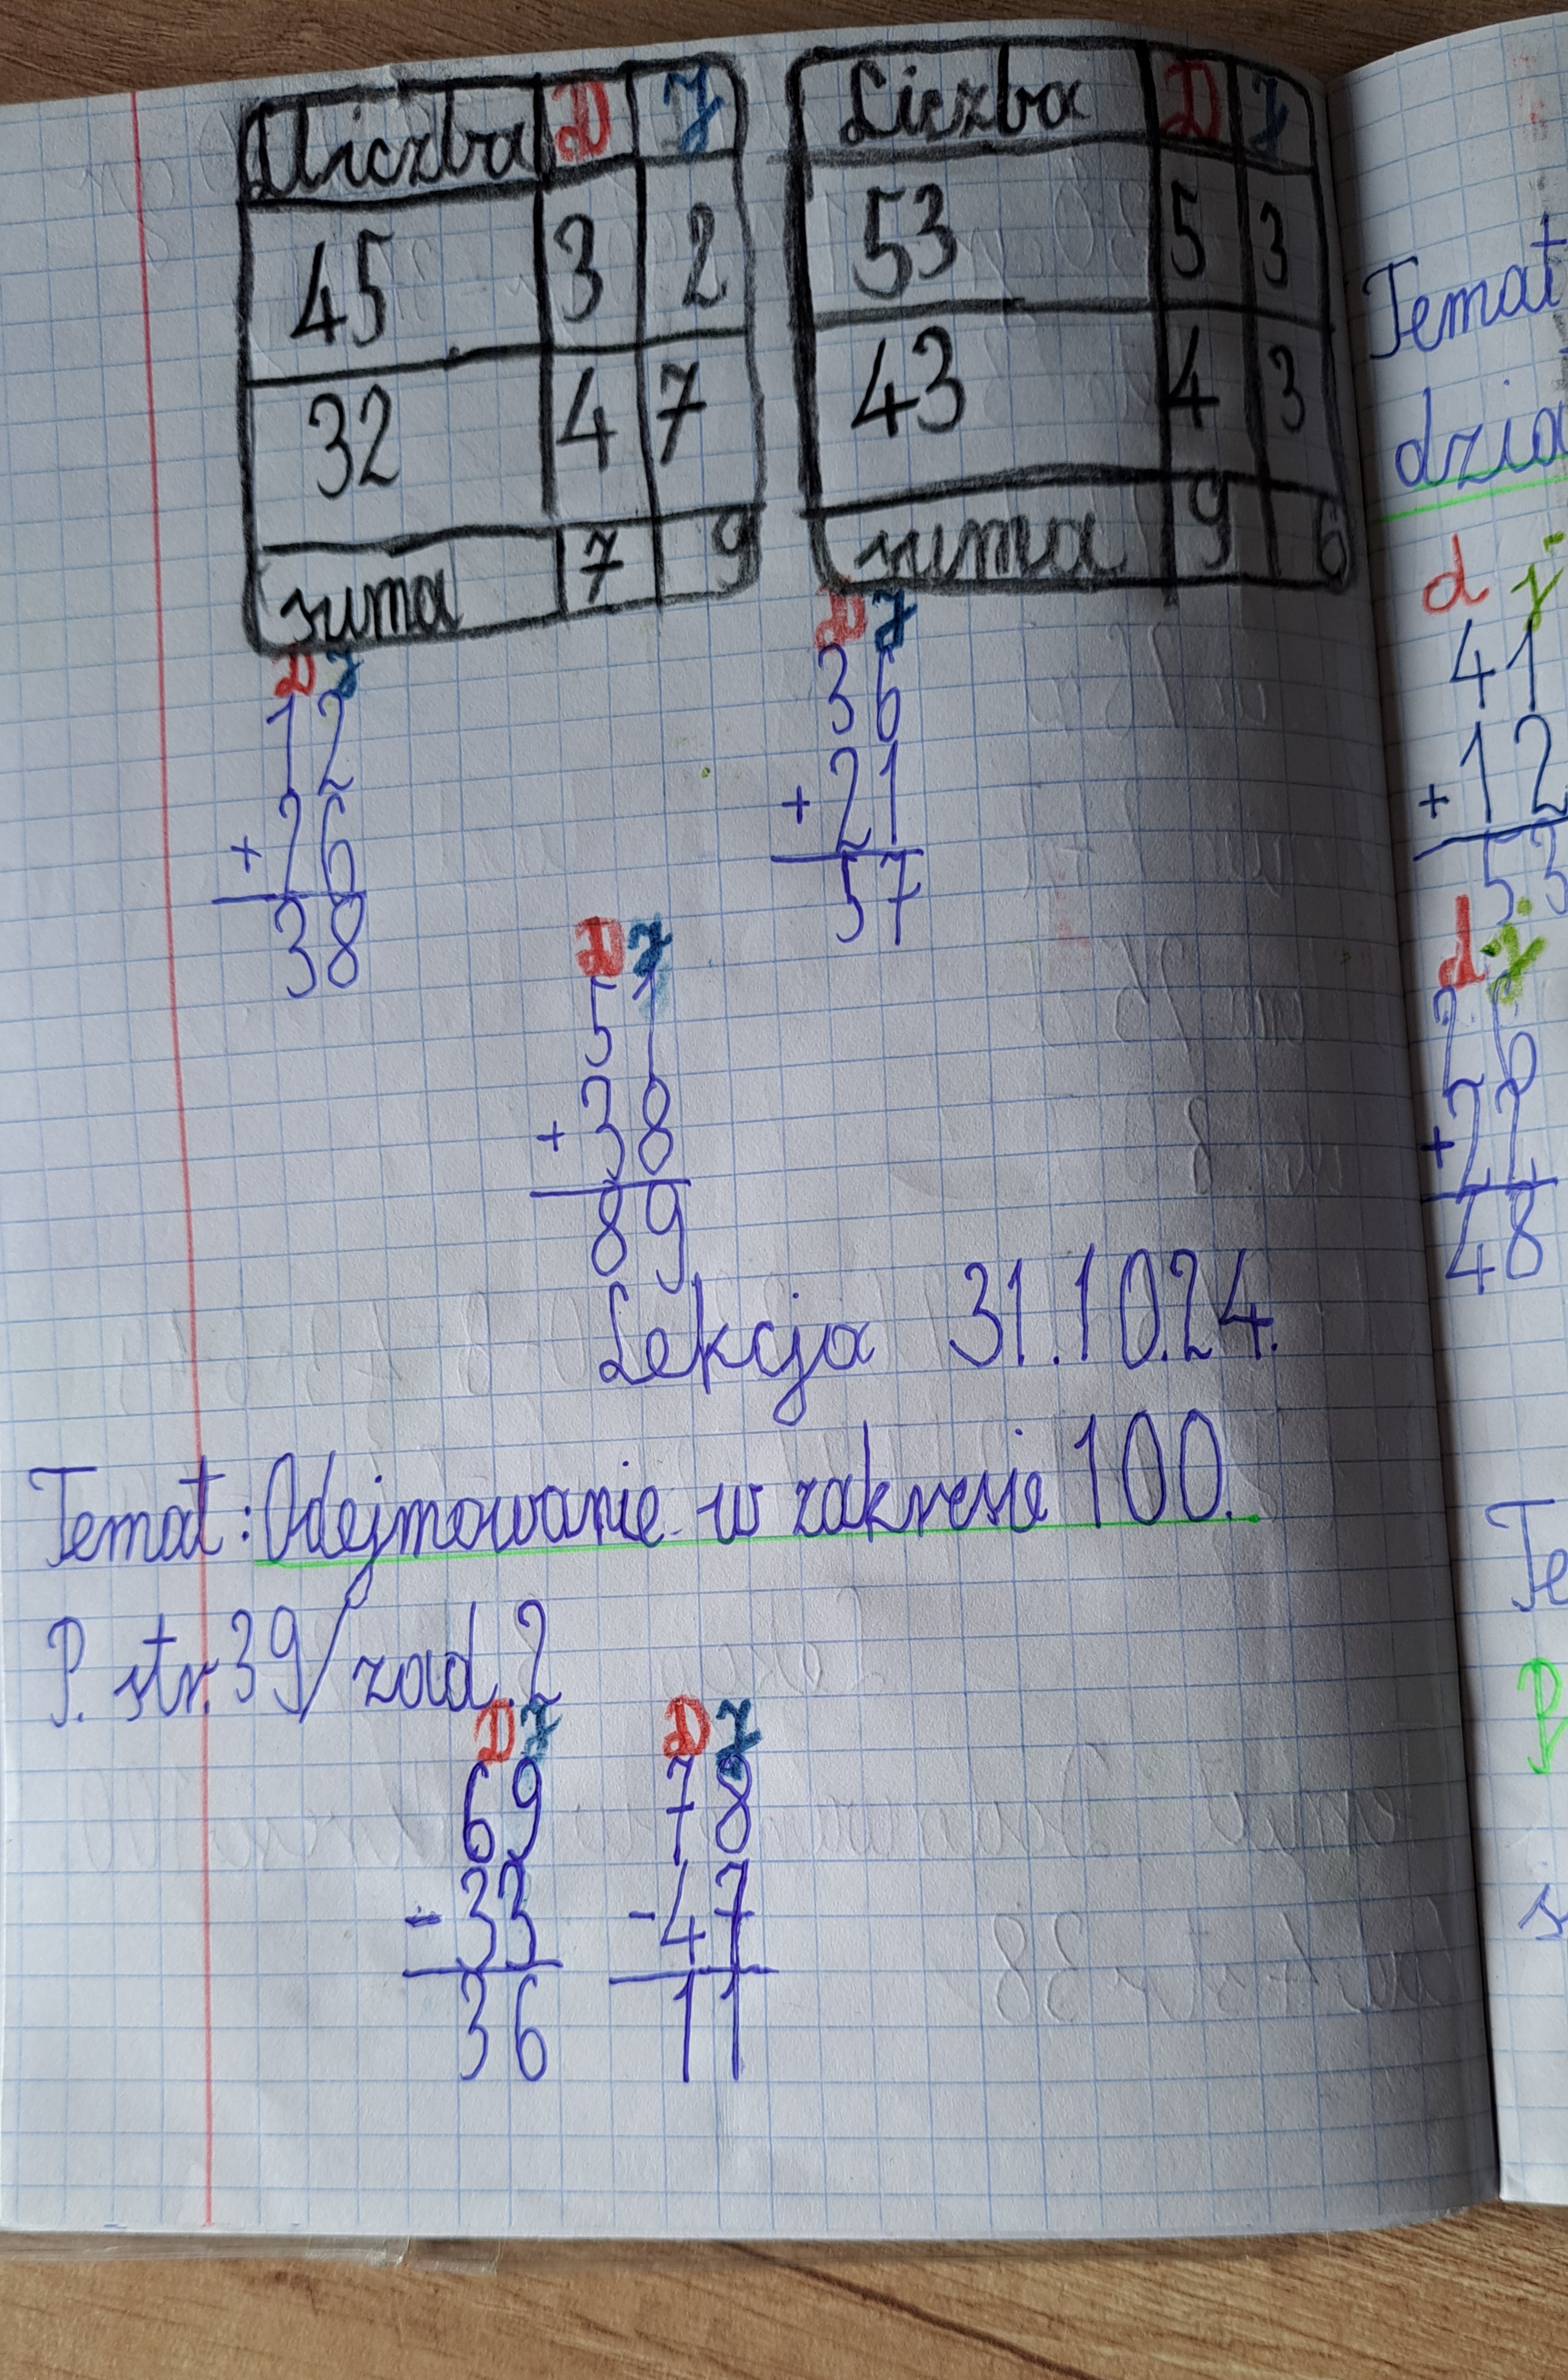 Liczba D J
45 3 2
32 4 7
suma 7 9
Liczba D J
53 5 3
43 4 3
suma 9 6
D J
12
+ 26
38
D J
36
+ 21
57
D J
51
+ 38
89
Lekcja 31.10.24.
Temat: Odejmowanie w zakresie 100.
P. str. 39/zad. 2
D J
69
- 33
36
D J
78
- 47
11
Temat
d j
41
+ 12
53
d j
26
+ 22
48